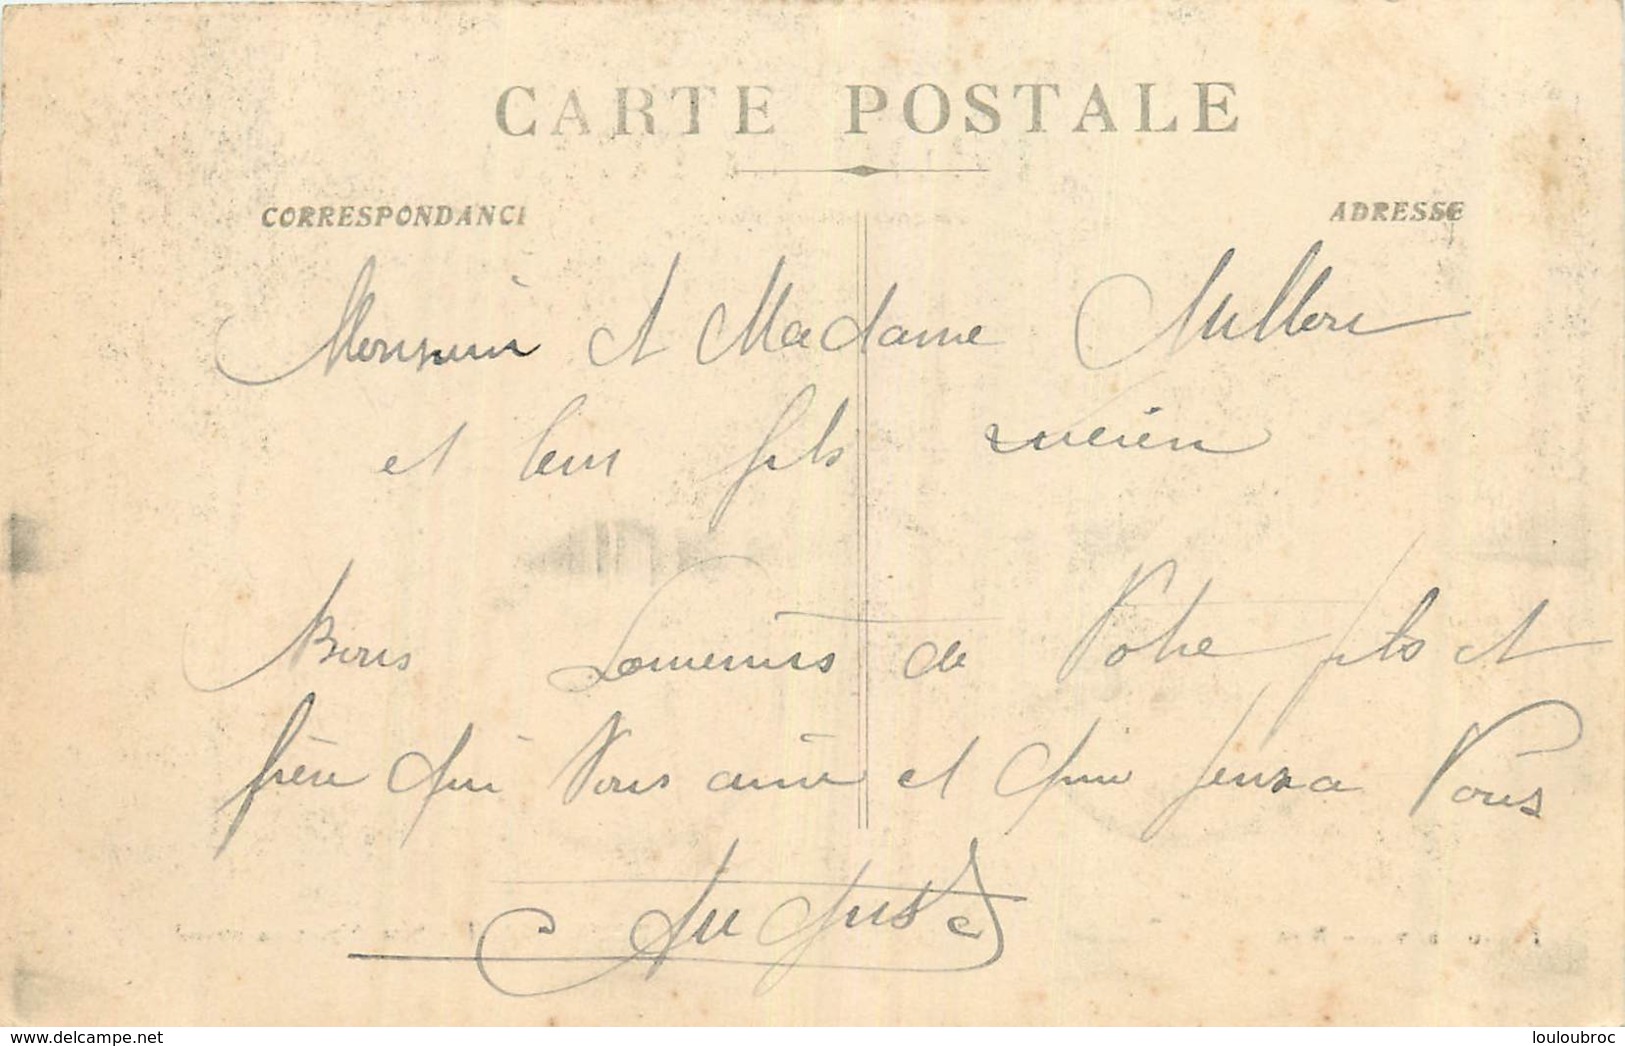 CARTE POSTALE
CORRESPONDANCE
ADRESSE
Monsieur et Madame
et leur fils Lucien
Bons Souvenirs de Votre fils et
frère qui Vous aime et qui pense a Vous
Auguste
delcampe.net
louloubroc